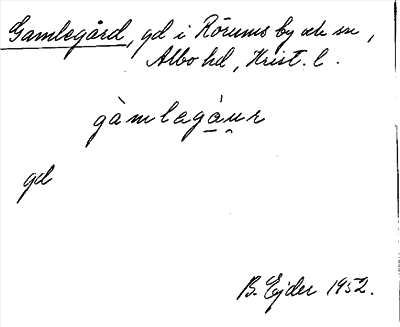 Gamlegård, gd i Rörums by och sn,
Albo hd, Krist. l.
gàmlagá̱u̯r
gd
B. Ejder 1952.